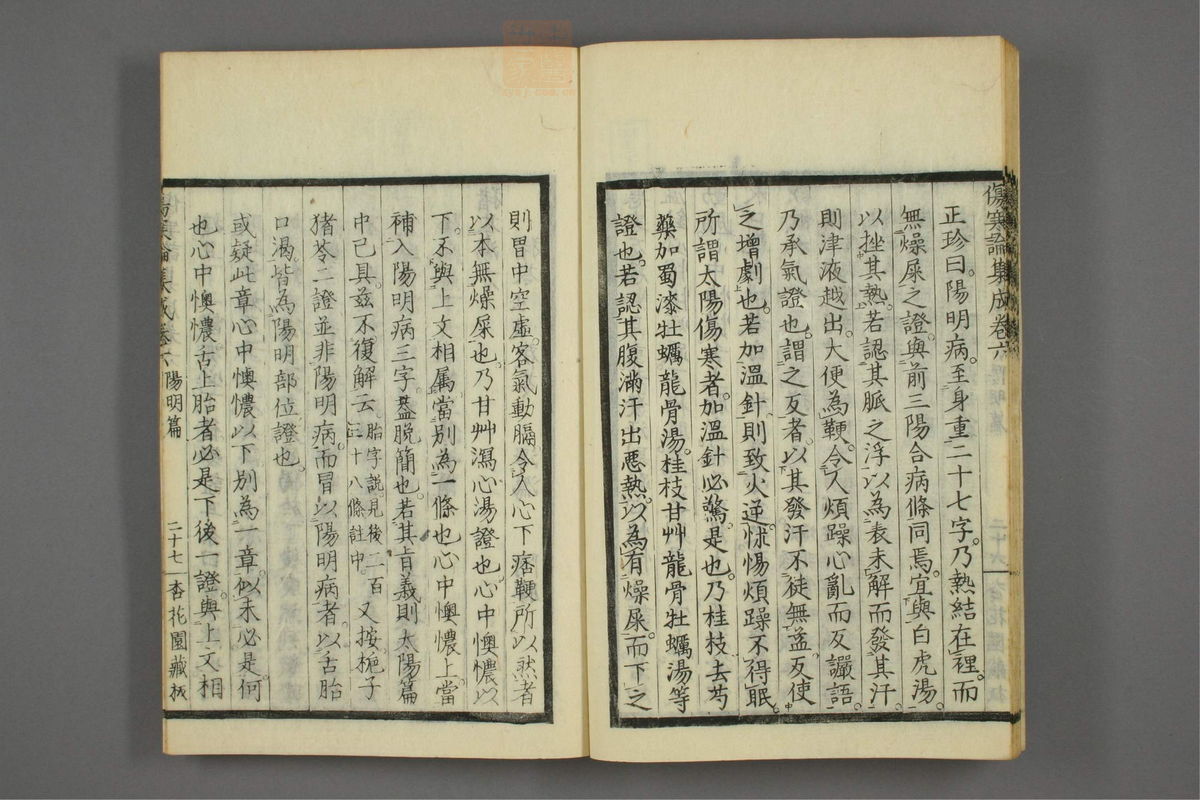 傷寒論集成卷六
正珍曰。陽明病。至身重二十七字。乃熱結在裡。而
無燥屎之證。與前三陽合病條同焉。宜與白虎湯。
以挫其熱。若認其脈之浮。以為表未解。而發其汗。
則津液越出。大便為鞕。令人煩躁心亂而反讝語。
乃承氣證也。謂之反者。以其發汗不徒無益。反使
之增劇也。若加溫針。則致火逆。怵惕煩躁不得眠。
所謂太陽傷寒者。加溫針必驚。是也。乃桂枝去芍
藥加蜀漆牡蠣龍骨湯。桂枝甘艸龍骨牡蠣湯等
證也。若認其腹滿汗出惡熱。以為有燥屎。而下之
則胃中空虛。客氣動膈。令人心下痞鞕。所以然者
以本無燥屎也。乃甘艸瀉心湯證也。心中懊憹以
下。不與上文相屬。當別為一條也。心中懊憹上。當
補入陽明病三字。蓋脫簡也。若其旨義。則太陽篇
中已具。茲不復解云。胎字說。見後二百三十八條註中。又按。梔子
豬苓二證並非陽明病。而冒以陽明病者。以舌胎
口渴。皆為陽明部位證也。
或疑此章心中懊憹以下別為一章。似未必是。何
也。心中懊憹舌上胎者。必是下後一證。與上文相
傷寒論集成卷六 陽明篇 二十七 杏花園藏板